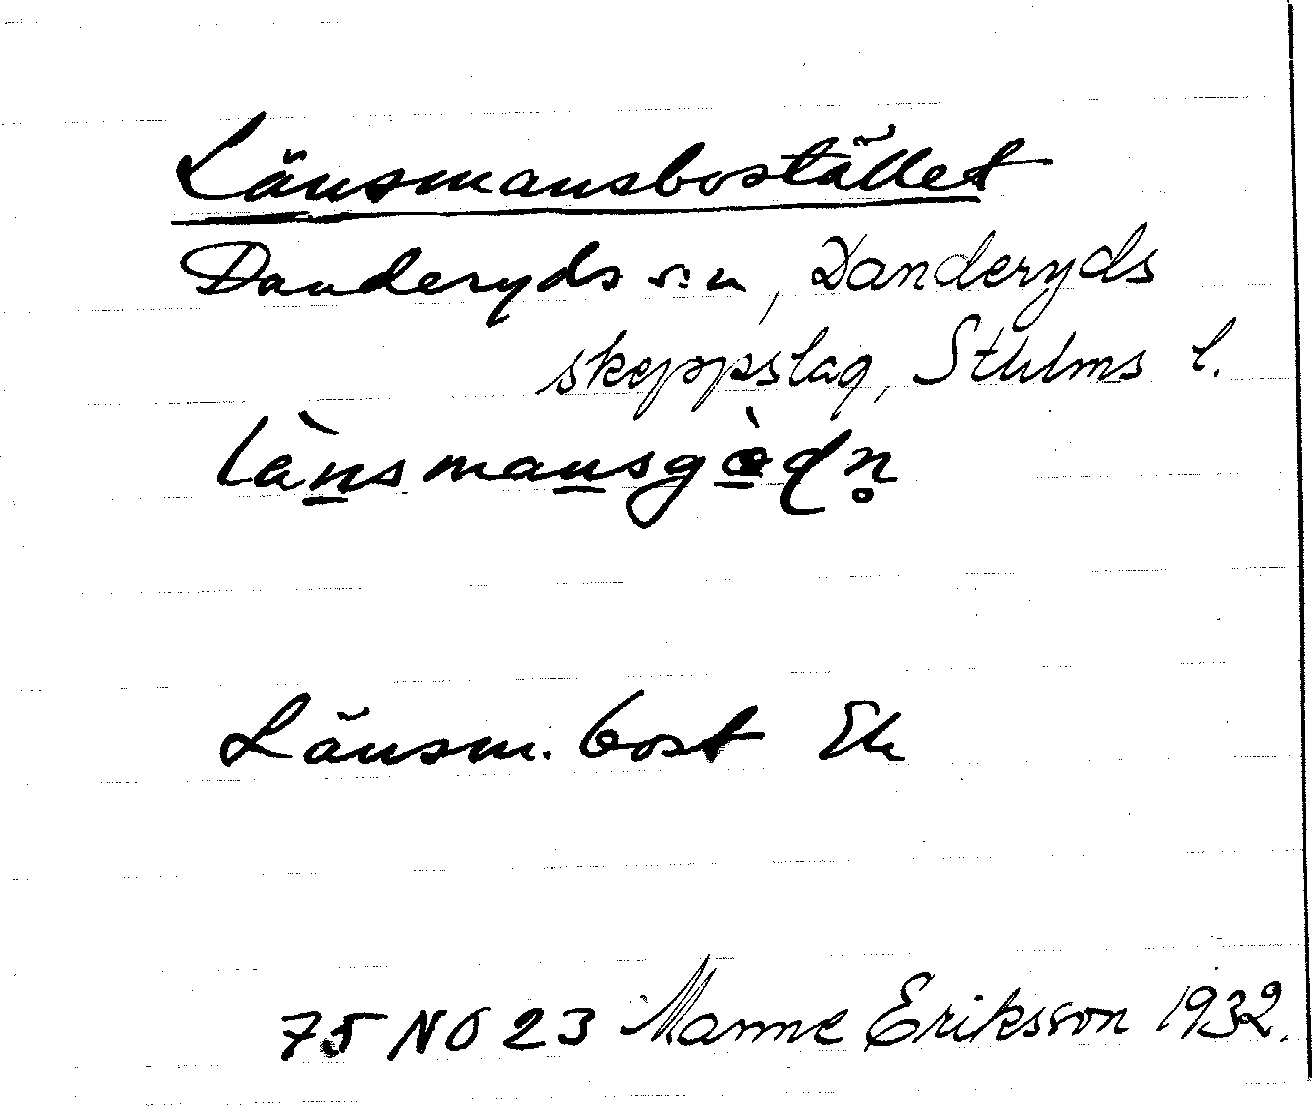 Länsmansbostället
Danderyds sn, Danderyds
skeppslag, Sthlms l.
Länsm. bost Ek
75 NO 23 Manne Eriksson 1932.